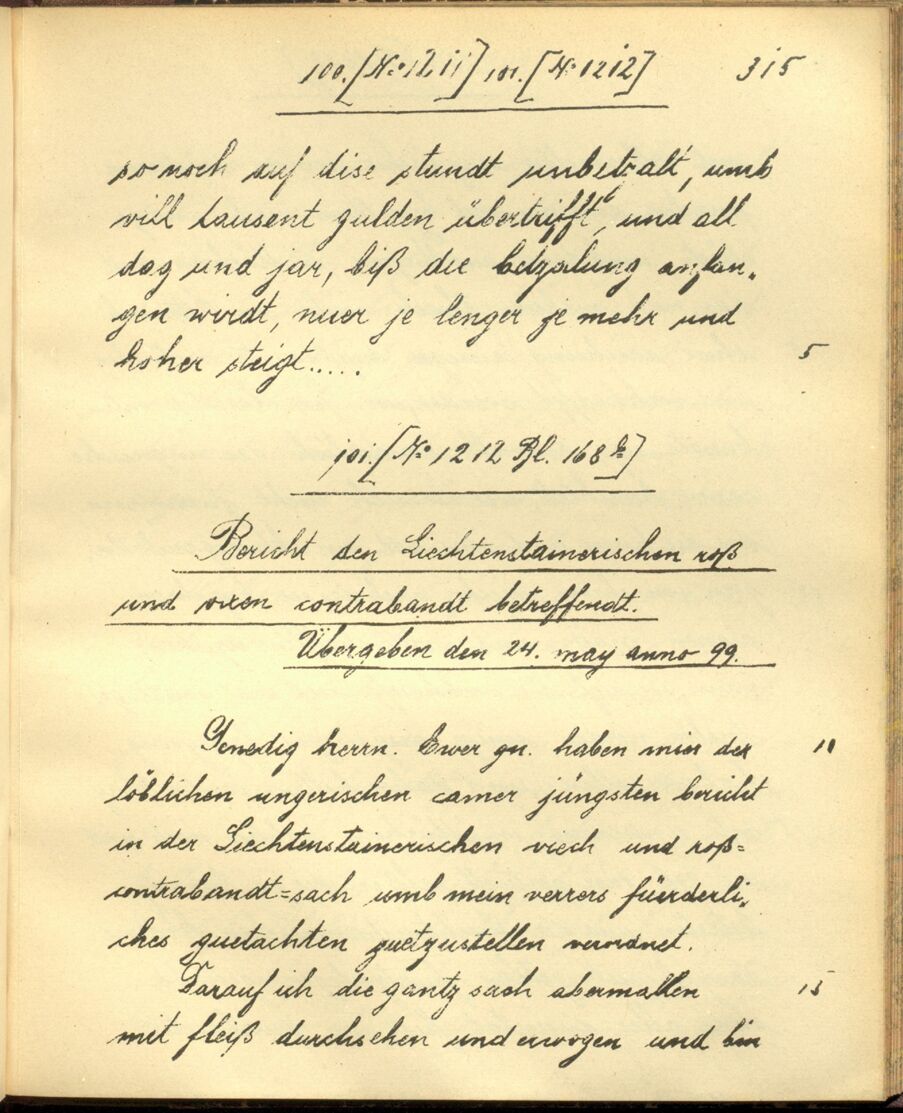 100. [No 1211] 101. [No 1212] 315
so noch auf dise stundt unbetzalt, umb
vill tausent gulden übertrifft, und all
dag und jar, biß die betzalung anfan„
gen wirdt, nuer je lenger je mehr und
hoher steigt..... 5
101. [No 1212 Bl. 168 b]
Bericht den Liechtenstainerischen roß
und oxen contrabandt betreffendt.
Übergeben den 24. may anno 99.
Genedig herrn. Ewer gn. haben mier der 10
löblichen ungerischen camer jüngsten bericht
in der Liechtenstainerischen viech und roß=
contrabandt=sach umb mein verrers füerderli„
ches guetachten guetzustellen verordnet.
Darauf ich die gantz sach abermallen 15
mit fleiß durchsehen und erwogen und bin